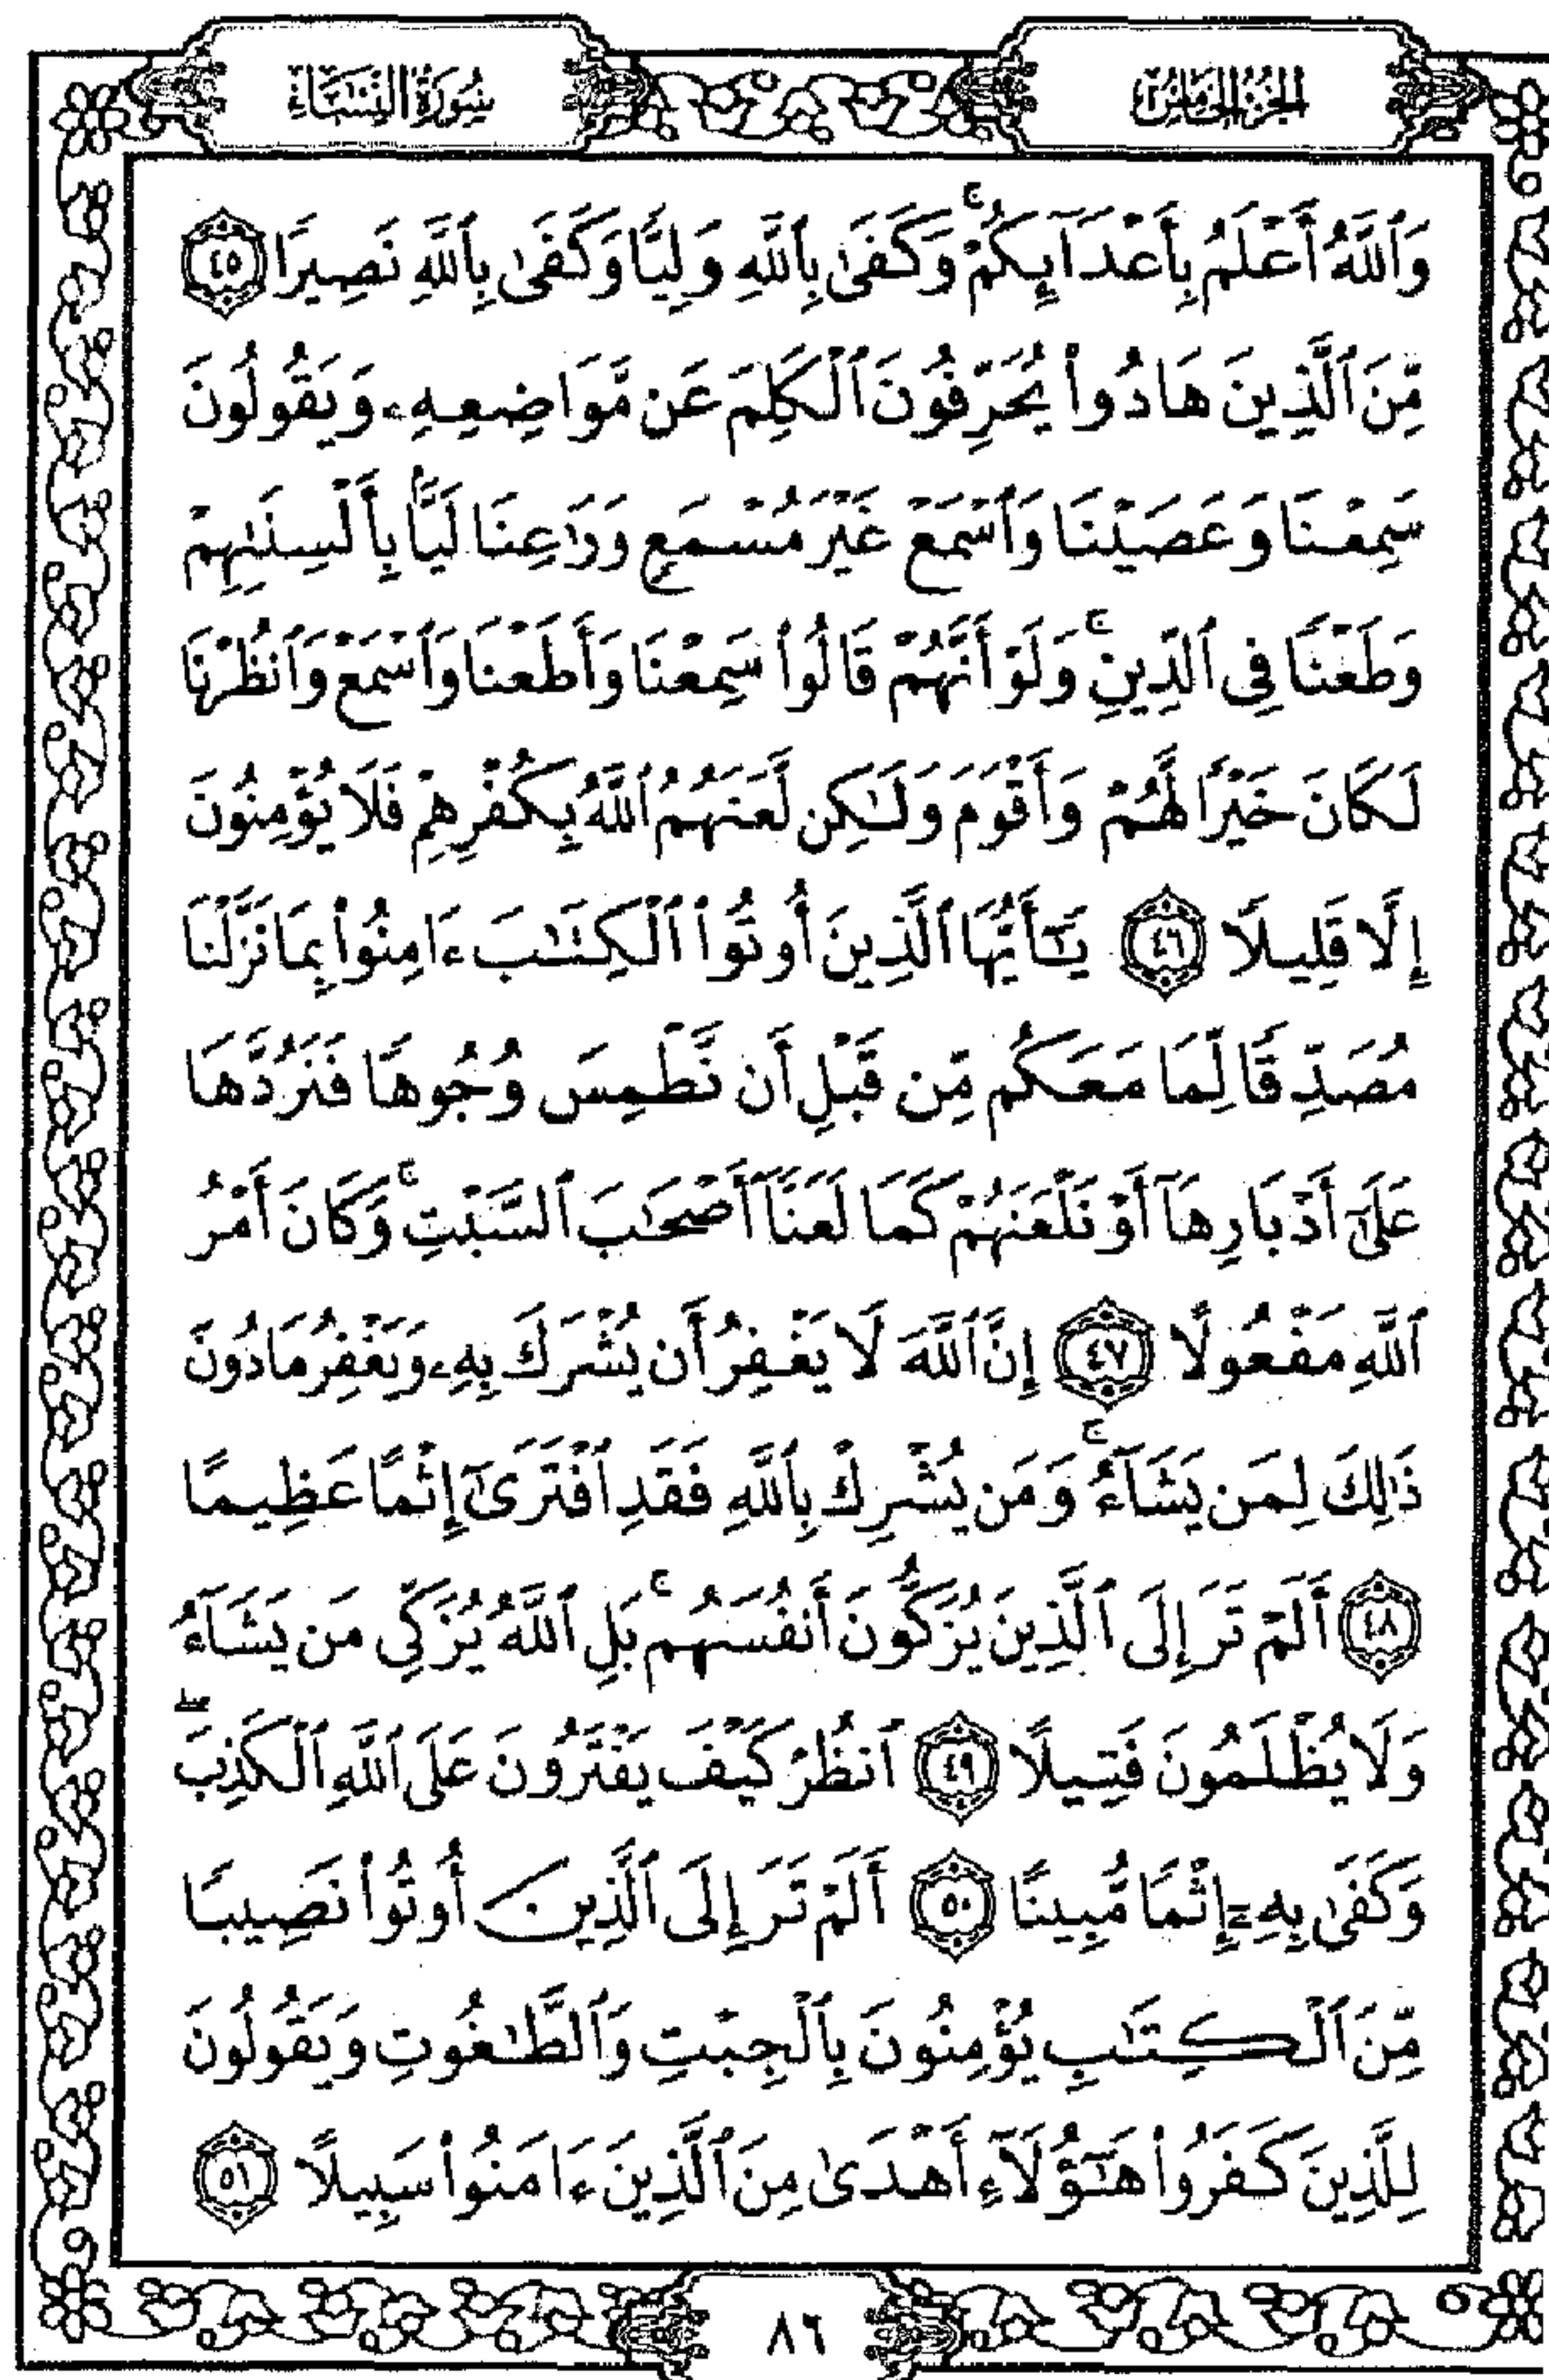 الجزء الخامس
سورة النساء
وَٱللَّهُ أَعْلَمُ بِأَعْدَآئِكُمْ ۚ وَكَفَىٰ بِٱللَّهِ وَلِيًّا وَكَفَىٰ بِٱللَّهِ نَصِيرًا ٤٥
مِّنَ ٱلَّذِينَ هَادُوا۟ يُحَرِّفُونَ ٱلْكَلِمَ عَن مَّوَاضِعِهِۦ وَيَقُولُونَ
سَمِعْنَا وَعَصَيْنَا وَٱسْمَعْ غَيْرَ مُسْمَعٍ وَرَٰعِنَا لَيًّۢا بِأَلْسِنَتِهِمْ
وَطَعْنًا فِى ٱلدِّينِ ۚ وَلَوْ أَنَّهُمْ قَالُوا۟ سَمِعْنَا وَأَطَعْنَا وَٱسْمَعْ وَٱنظُرْنَا
لَكَانَ خَيْرًا لَّهُمْ وَأَقْوَمَ وَلَـٰكِن لَّعَنَهُمُ ٱللَّهُ بِكُفْرِهِمْ فَلَا يُؤْمِنُونَ
إِلَّا قَلِيلًا ٤٦ يَـٰٓأَيُّهَا ٱلَّذِينَ أُوتُوا۟ ٱلْكِتَـٰبَ ءَامِنُوا۟ بِمَا نَزَّلْنَا
مُصَدِّقًا لِّمَا مَعَكُم مِّن قَبْلِ أَن نَّطْمِسَ وُجُوهًا فَنَرُدَّهَا
عَلَىٰٓ أَدْبَارِهَآ أَوْ نَلْعَنَهُمْ كَمَا لَعَنَّآ أَصْحَـٰبَ ٱلسَّبْتِ ۚ وَكَانَ أَمْرُ
ٱللَّهِ مَفْعُولًا ٤٧ إِنَّ ٱللَّهَ لَا يَغْفِرُ أَن يُشْرَكَ بِهِۦ وَيَغْفِرُ مَا دُونَ
ذَٰلِكَ لِمَن يَشَآءُ ۚ وَمَن يُشْرِكْ بِٱللَّهِ فَقَدِ ٱفْتَرَىٰٓ إِثْمًا عَظِيمًا
٤٨ أَلَمْ تَرَ إِلَى ٱلَّذِينَ يُزَكُّونَ أَنفُسَهُم ۚ بَلِ ٱللَّهُ يُزَكِّى مَن يَشَآءُ
وَلَا يُظْلَمُونَ فَتِيلًا ٤٩ ٱنظُرْ كَيْفَ يَفْتَرُونَ عَلَى ٱللَّهِ ٱلْكَذِبَ ۖ
وَكَفَىٰ بِهِۦٓ إِثْمًا مُّبِينًا ٥٠ أَلَمْ تَرَ إِلَى ٱلَّذِينَ أُوتُوا۟ نَصِيبًا
مِّنَ ٱلْكِتَـٰبِ يُؤْمِنُونَ بِٱلْجِبْتِ وَٱلطَّـٰغُوتِ وَيَقُولُونَ
لِلَّذِينَ كَفَرُوا۟ هَـٰٓؤُلَآءِ أَهْدَىٰ مِنَ ٱلَّذِينَ ءَامَنُوا۟ سَبِيلًا ٥١
٨٦